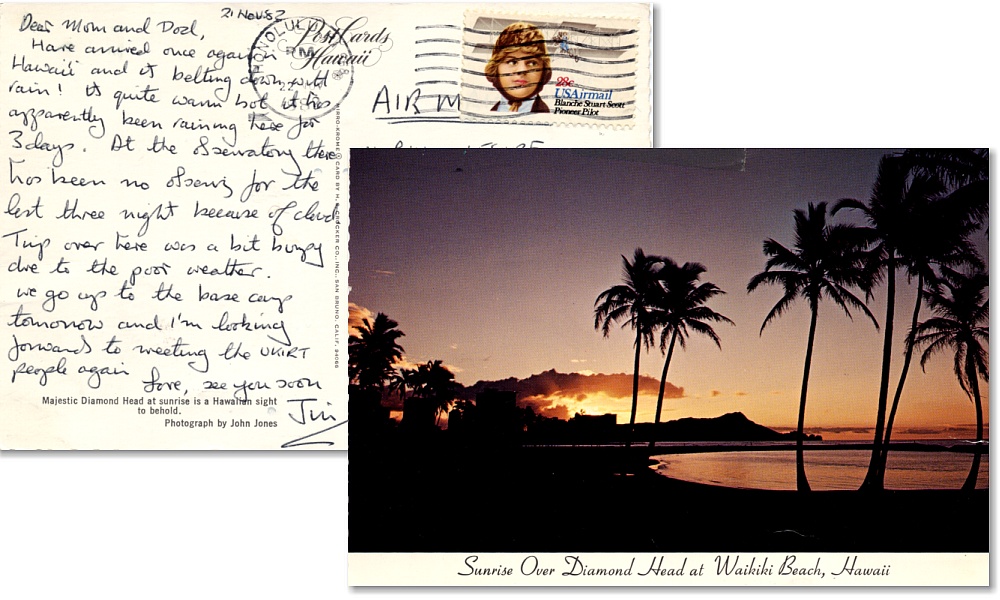 21 Nov 82
Dear Mom and Dad,
Have arrived once again in
Hawaii and it belting down with
rain! It quite warm but it has
apparently been raining here for
3 days. At the Observatory there
has been no observing for the
last three night because of cloud
Trip over here was a bit bumpy
due to the poor weather.
We go up to the base camp
tomorrow and I'm looking
forwards to meeting the UKIRT
people again
Love, see you soon
Jim
Majestic Diamond Head at sunrise is a Hawaiian sight
to behold.
Photograph by John Jones
Post Cards
Hawaii
HONOLULU
PM
AIR M
28c
USAirmail
Blanche Stuart Scott
Pioneer Pilot
CO., INC., SAN BRUNO, CALIF. 94066
Sunrise Over Diamond Head at Waikiki Beach, Hawaii